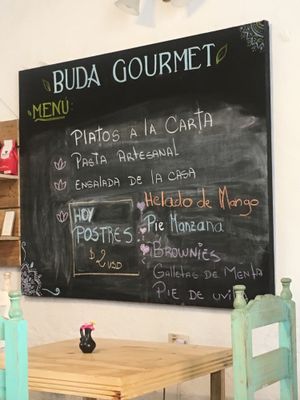 BUDA GOURMET
MENU:
PLATOS A LA CARTA
PASTA ARTESANAL
ENSALADA DE LA CASA
HOY
POSTRES
2 USD
HELADO DE MANGO
PIE MANZANA
BROWNIES
GALLETAS DE MENTA
PIE DE UVI